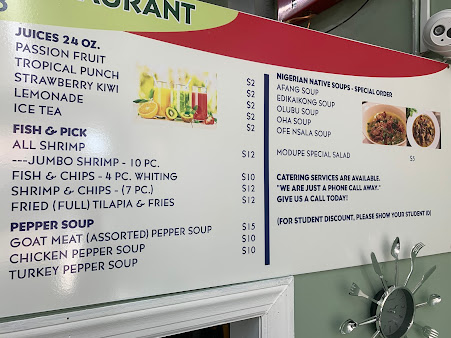 RESTAURANT
JUICES 24 OZ.
PASSION FRUIT $2
TROPICAL PUNCH $2
STRAWBERRY KIWI $2
LEMONADE $2
ICE TEA $2
FISH & PICK
ALL SHRIMP $12
---JUMBO SHRIMP - 10 PC.
FISH & CHIPS - 4 PC. WHITING $10
SHRIMP & CHIPS - (7 PC.) $12
FRIED (FULL) TILAPIA & FRIES $12
PEPPER SOUP
GOAT MEAT (ASSORTED) PEPPER SOUP $15
CHICKEN PEPPER SOUP $10
TURKEY PEPPER SOUP $10
NIGERIAN NATIVE SOUPS - SPECIAL ORDER
AFANG SOUP
EDIKAIKONG SOUP
OLUBU SOUP
OHA SOUP
OFE NSALA SOUP
MODUPE SPECIAL SALAD $5
CATERING SERVICES ARE AVAILABLE.
"WE ARE JUST A PHONE CALL AWAY."
GIVE US A CALL TODAY!
(FOR STUDENT DISCOUNT, PLEASE SHOW YOUR ID)